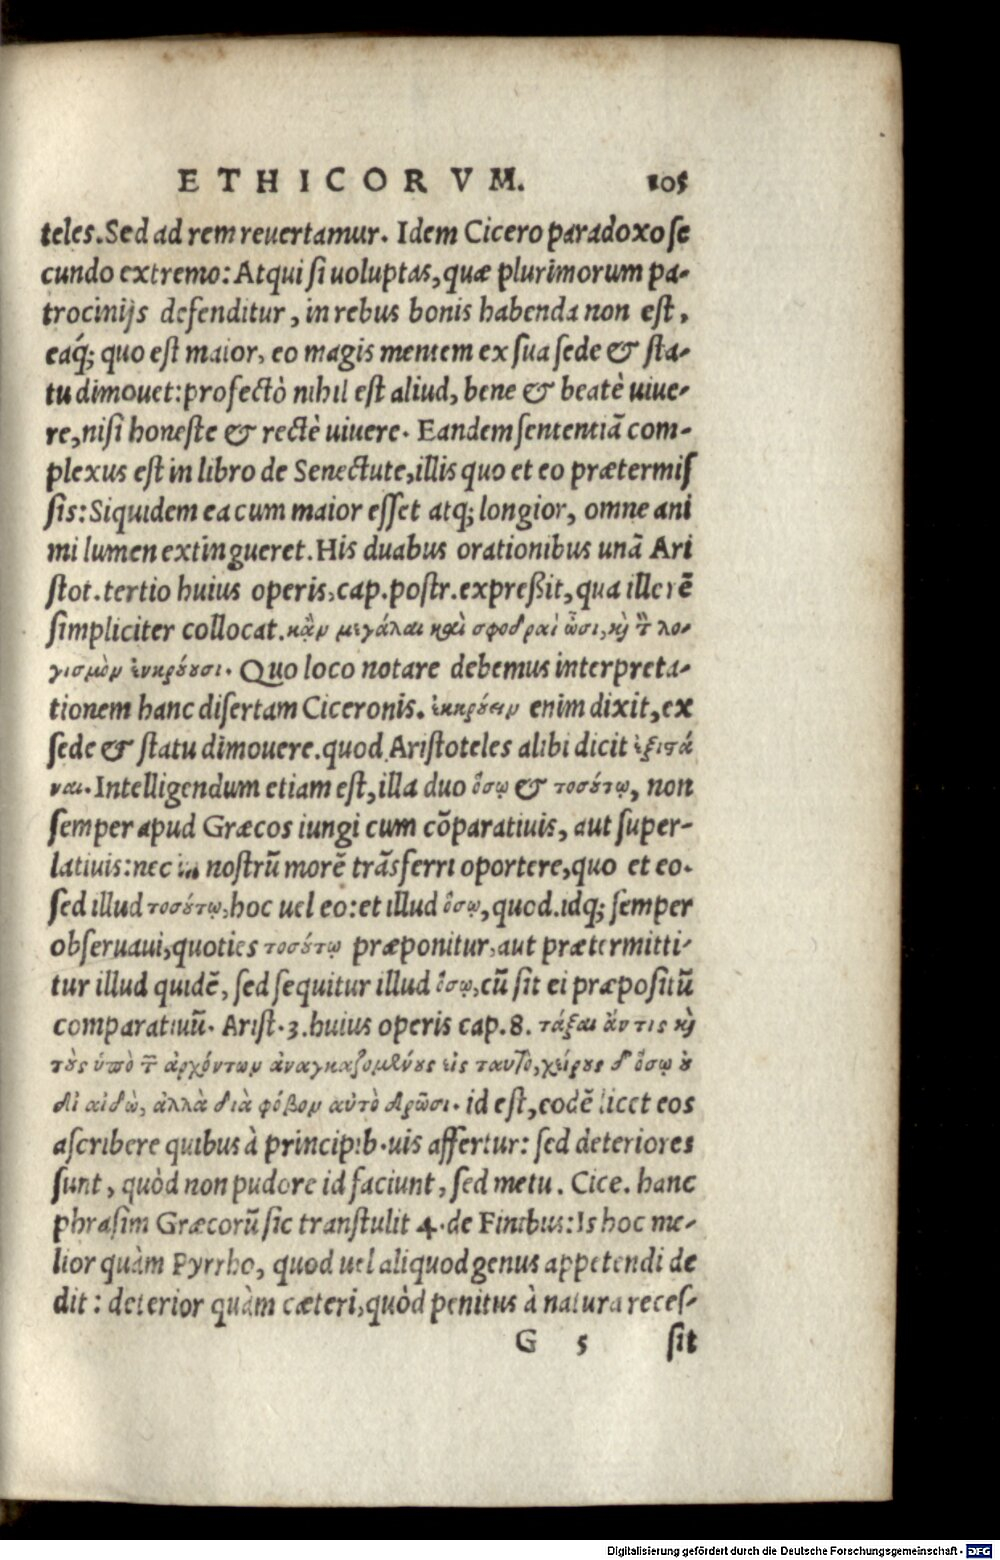 ETHICORVM. 105
teles. Sed ad rem reuertamur. Idem Cicero paradoxo se
cundo extremo: Atqui si uoluptas, quæ plurimorum pa-
trocinijs defenditur, in rebus bonis habenda non est,
eaq́; quo est maior, eo magis mentem ex sua sede & sta-
tu dimouet: profectò nihil est aliud, bene & beatè uiue-
re, nisi honeste & rectè uiuere. Eandem sententiā com-
plexus est in libro de Senectute, illis quo et eo prætermis
sis: Siquidem ea cum maior esset atq; longior, omne ani
mi lumen extingueret. His duabus orationibus unā Ari
stot. tertio huius operis, cap. postr. expreßit, qua ille rē
simpliciter collocat. κἂν μεγάλαι καὶ σφοδραὶ ὦσι, καὶ τ̃ λο-
γισμὸν ἐκκρούουσι. Quo loco notare debemus interpreta-
tionem hanc disertam Ciceronis. ἐκκρούειν enim dixit, ex
sede & statu dimouere. quod Aristoteles alibi dicit ἐξιστά
ναι. Intelligendum etiam est, illa duo ὅσῳ & τοσούτῳ, non
semper apud Græcos iungi cum cōparatiuis, aut super-
latiuis: nec in nostrū morē trāsferri oportere, quo et eo.
sed illud τοσούτῳ, hoc uel eo: et illud ὅσῳ, quod. idq; semper
obseruaui, quoties τοσούτῳ præponitur, aut prætermitti-
tur illud quidē, sed sequitur illud ὅσῳ, cū sit ei præpositū
comparatiuū. Arist. 3. huius operis cap. 8. τάξαι ἄν τις καὶ
τοὺς ὑπὸ τ̃ ἀρχόντων ἀναγκαζομένους εἰς ταυτὸ, χείρους δ' ὅσῳ οὐ
δι αἰδῶ, ἀλλὰ διὰ φόβον αὐτὸ δρῶσι. id est, eodē licet eos
ascribere quibus à principib. uis affertur: sed deteriores
sunt, quòd non pudore id faciunt, sed metu. Cice. hanc
phrasim Græcorū sic transtulit 4. de Finibus: Is hoc me-
lior quàm Pyrrho, quod uel aliquod genus appetendi de
dit: deterior quàm cæteri, quòd penitus à natura reces-
G 5 sit
Digitalisierung gefördert durch die Deutsche Forschungsgemeinschaft - DFG